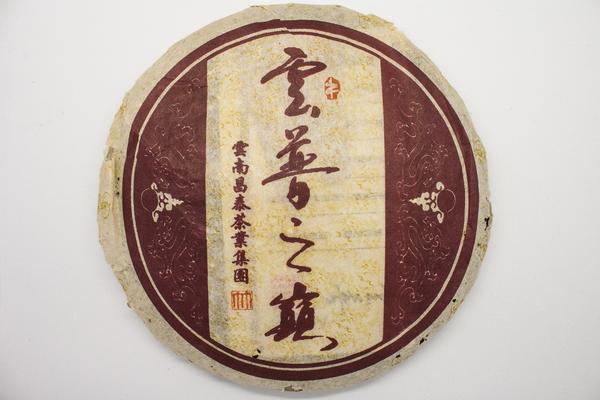 雲普之巔
雲南昌泰茶業集團